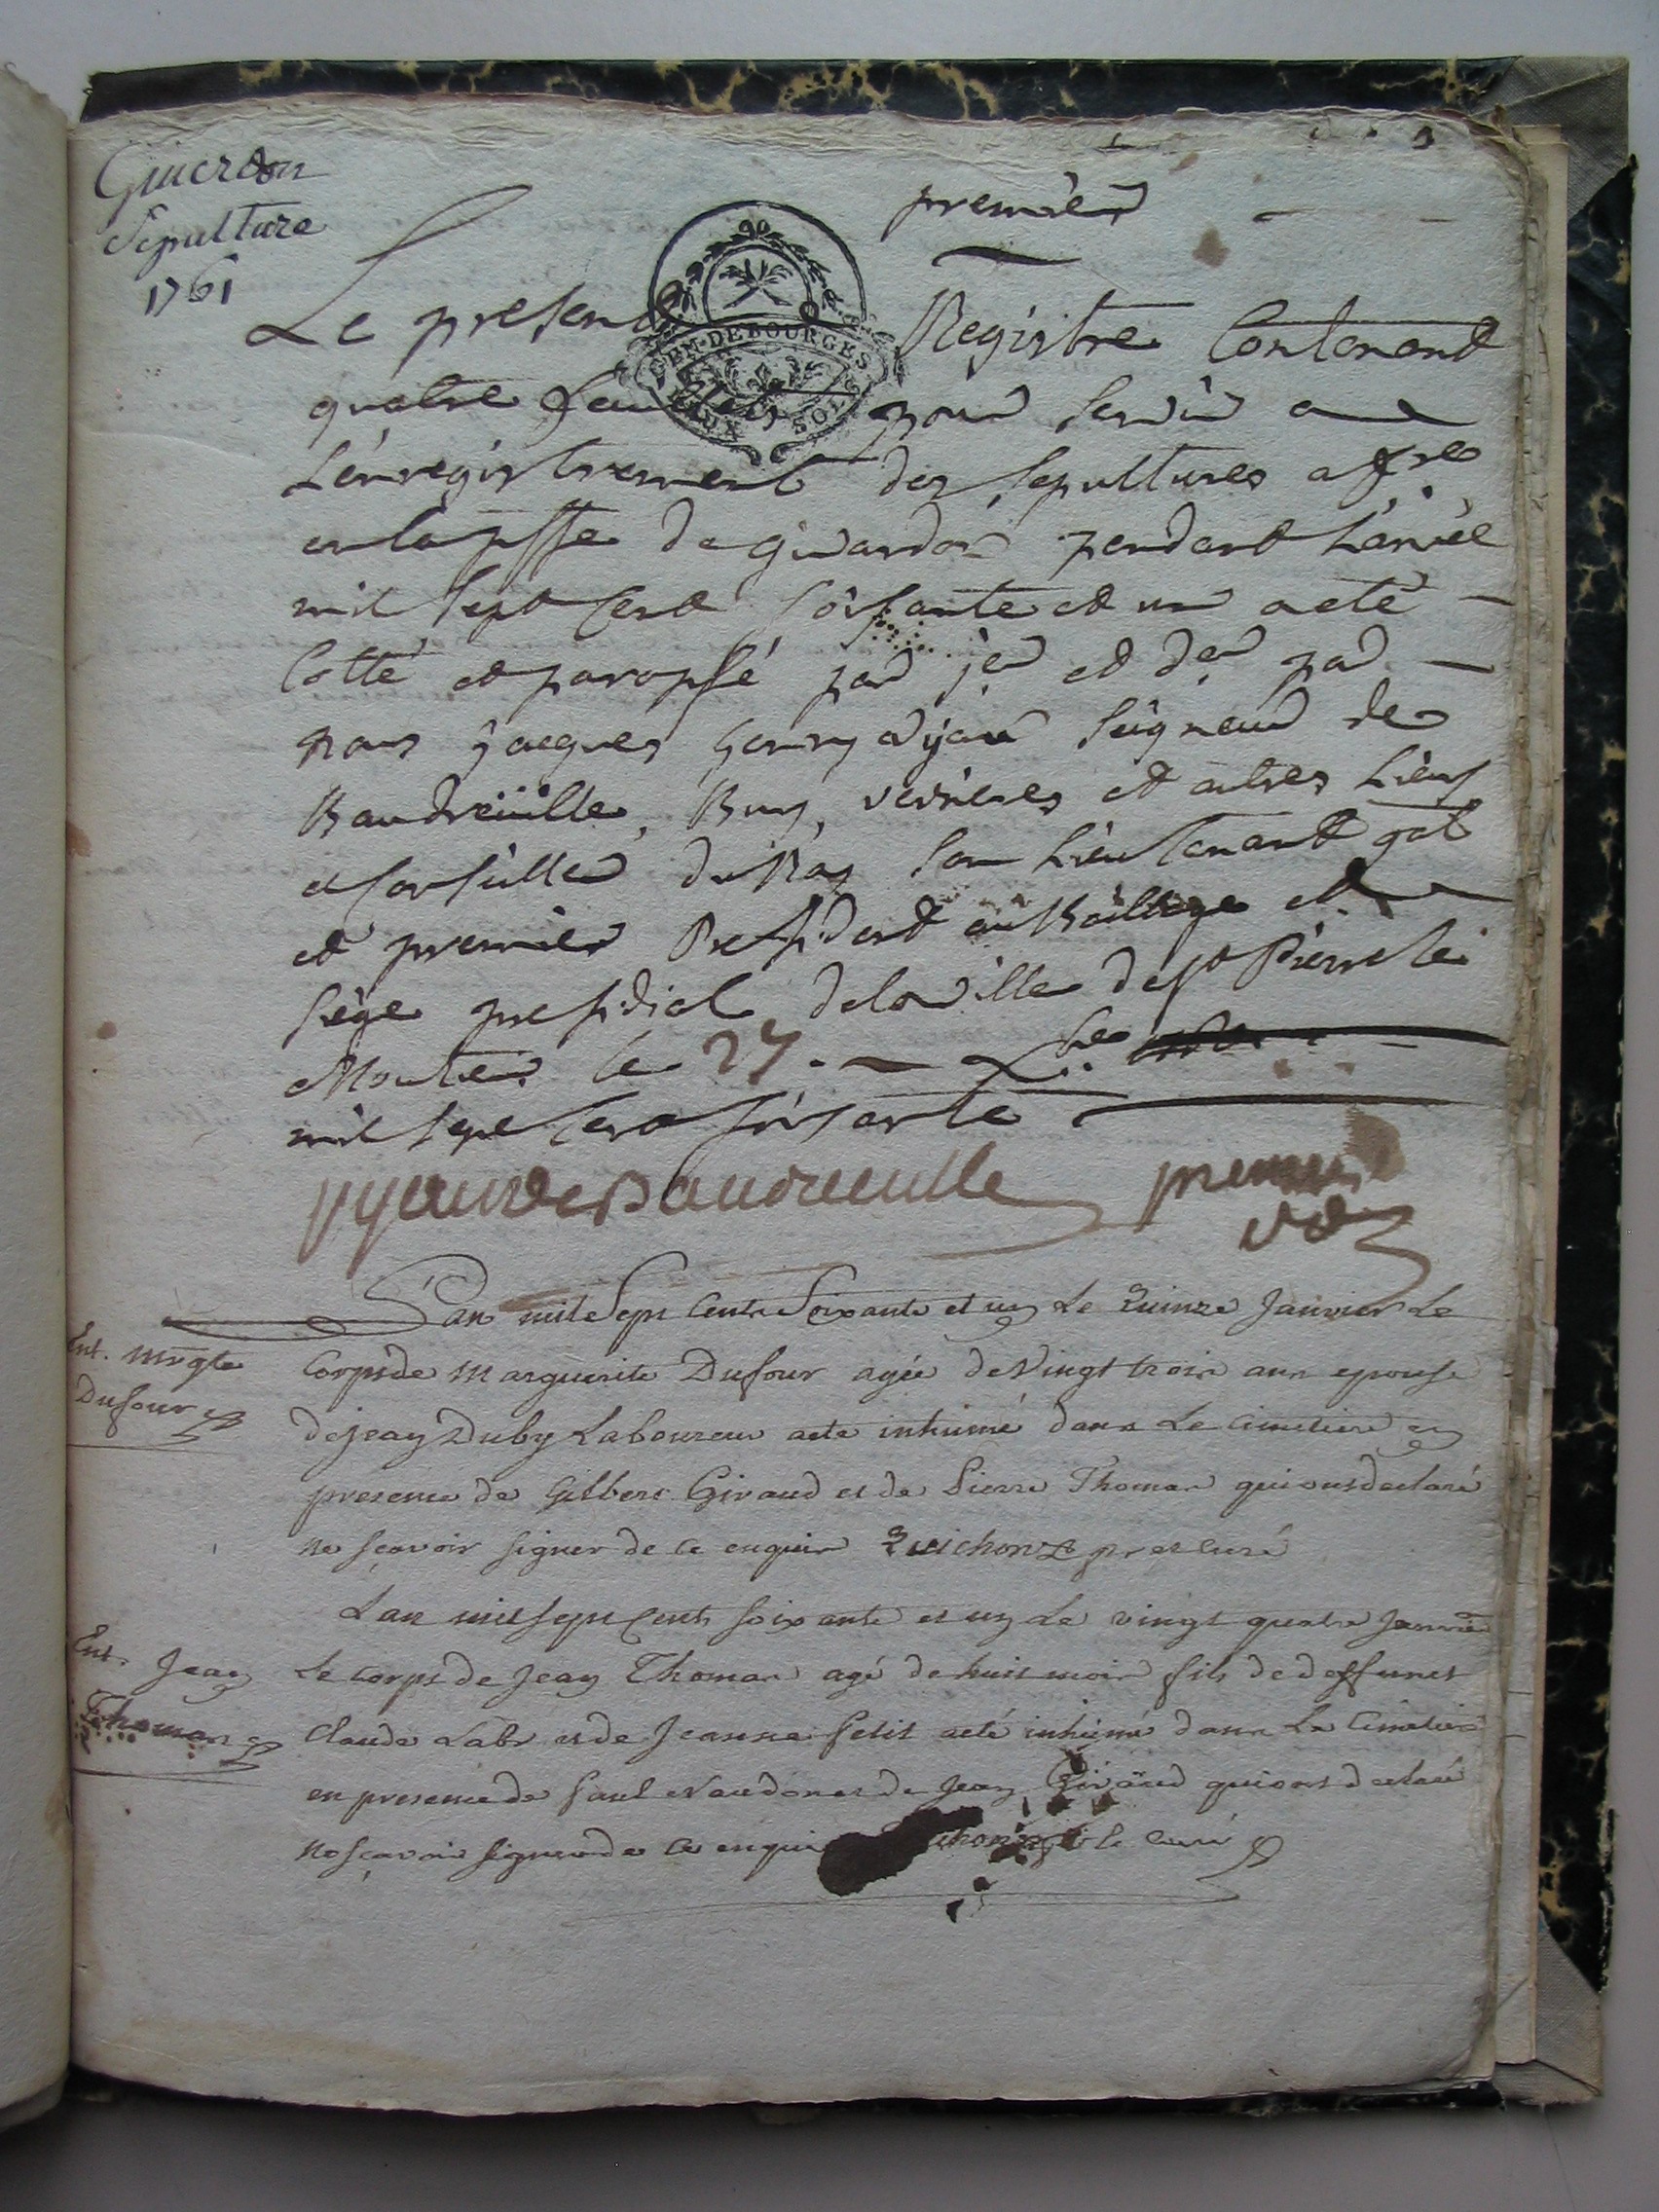 Guerdon
Sepulture
1761
premier
GEN. DE BOURGES
DEUX SOLS
Le present Registre Contenant
quatre feuillets pour servir a
L'enregistrement des sepultures a fre
en la psse de guardon pendant L'année
mil sept Cent soissante et un a eté
Cotté et paraphé par jer et der par
nous jacques henry vyau seigneur de
Baudreüille, Buy, verrieres et autres Lieux
Conseiller du Roy son Lieutenant gal
et premier President au Bailliage et
siege presidial de la ville de st Pierre le
Moutier le 27. Xbre
mil sept Cent soisante
vyau de Baudreuille premier
VdB
L'an mil Sept Cents Soixante et un Le Quinze Janvier Le
Ent. Mrgte
Dufour
Corps de Marguerite Dufour agée de Vingt trois ans epouse
de jean Duby Laboureur a ete inhumé dans Le Cimetiere en
presence de Gilbert Giraud et de Pierre Thomas qui ont declaré
ne sçavoir signer de ce enquis Quichon ptre curé
L'an mil sept Cents soixante et un Le vingt quatre Janvier
Ent. Jean
Thomas
Le corps de Jean Thomas agé de huit mois fils de deffunct
Claude Labr et de Jeanne Petit a eté inhumé dans Le Cimetiere
en presence de Paul et de Jean Giraud qui ont declaré
ne sçavoir signer de ce enquis curé